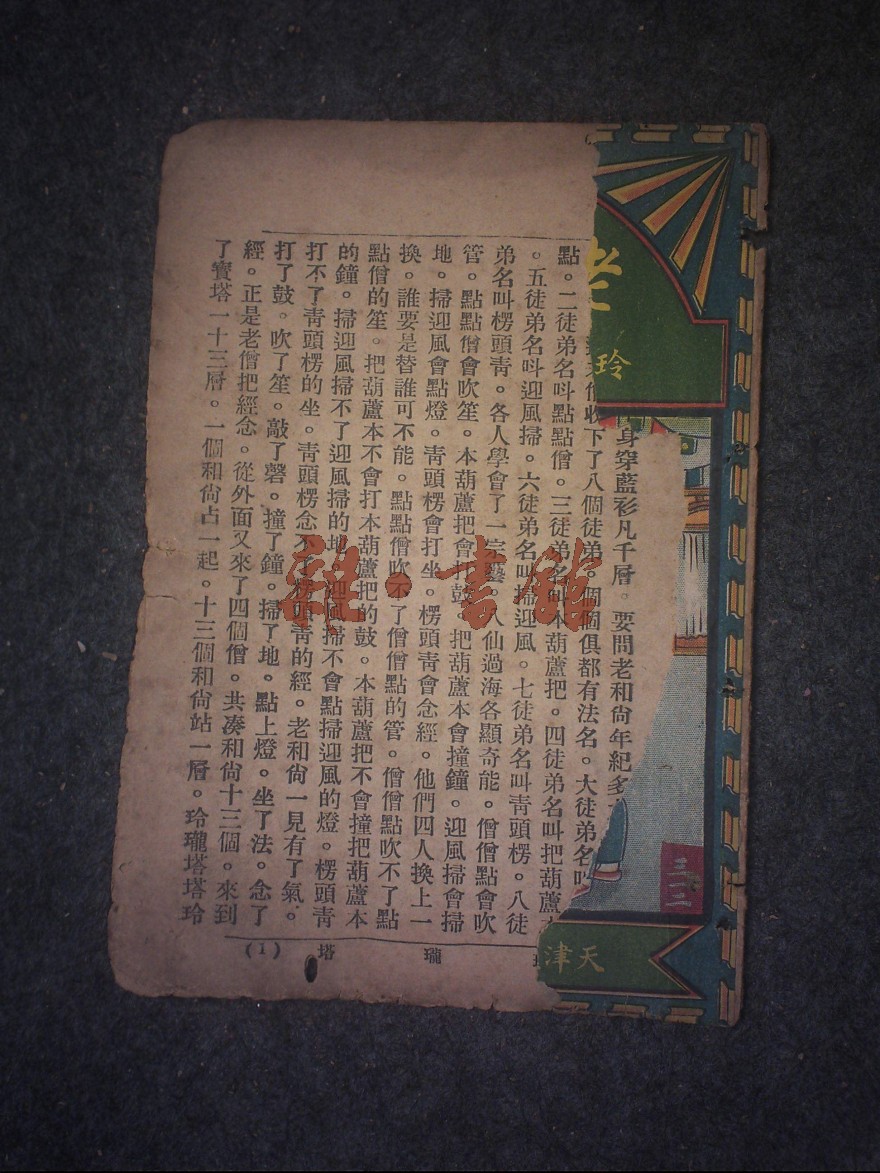 老
玲
身穿藍衫凡千層。要問老和尙年紀多
收下了八個徒弟。個個俱都有法名。大徒弟名叫
點。二徒弟名呌點點僧。三徒弟名叫本葫蘆把。四徒弟名叫把葫蘆
。五徒弟名呌迎風掃。六徒弟名叫掃迎風。七徒弟名叫靑頭楞。八徒
弟名叫楞頭靑。各人學會了一宗藝。八仙過海各顯奇能。僧僧點會吹
管。點點僧會吹笙。本葫蘆把會打鼓。把葫蘆本會撞鐘。迎風掃會掃
地。掃迎風會點燈。靑頭楞會打坐。楞頭靑會念經。他們四人換上一
換。誰要是替誰可不能。點點僧吹不了僧僧點的管。僧僧點吹不了點
點僧的笙。把葫蘆本不會打本葫蘆把的鼓。本葫蘆把不會撞把葫蘆本
的鐘。掃迎風掃不了迎風掃的地。迎風掃不會點掃迎風的燈。楞頭靑
打不了靑頭楞的坐。靑頭楞念不了楞頭靑的經。老和尙一見有了氣。
打了鼓。吹了笙。敲了磬。撞了鐘。掃了地。點上燈。坐了法。念了
經。正是老僧把經念。從外面又來了四個僧。共凑和尙十三個。來到
了寶塔一十三層。一個和尙占一起。十三個和尙站一層。玲瓏塔塔玲
瓏
塔
(1)
三二
天津
雜·書館